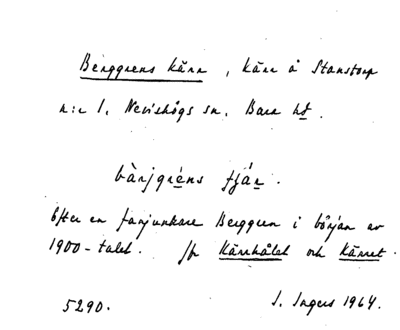 Berggrens kärr, kärr å Stanstorp
n:r 1. Nevishögs sn. Bara hd.
bàrjgréns tjár.
Efter en fanjunkare Berggren i början av
1900-talet. Jfr Kärrhålet och Kärret.
5290. I. Ingers 1964.